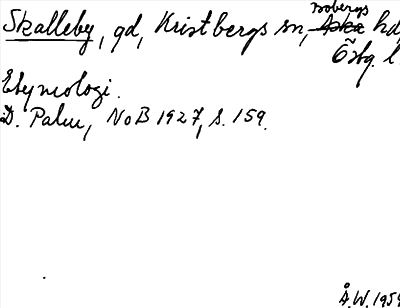 Skalleby, gd, Kristbergs sn, Bobergs hd,
Östg. l
Etymologi.
D. Palm, NoB 1927, s. 159.
Å.W. 195